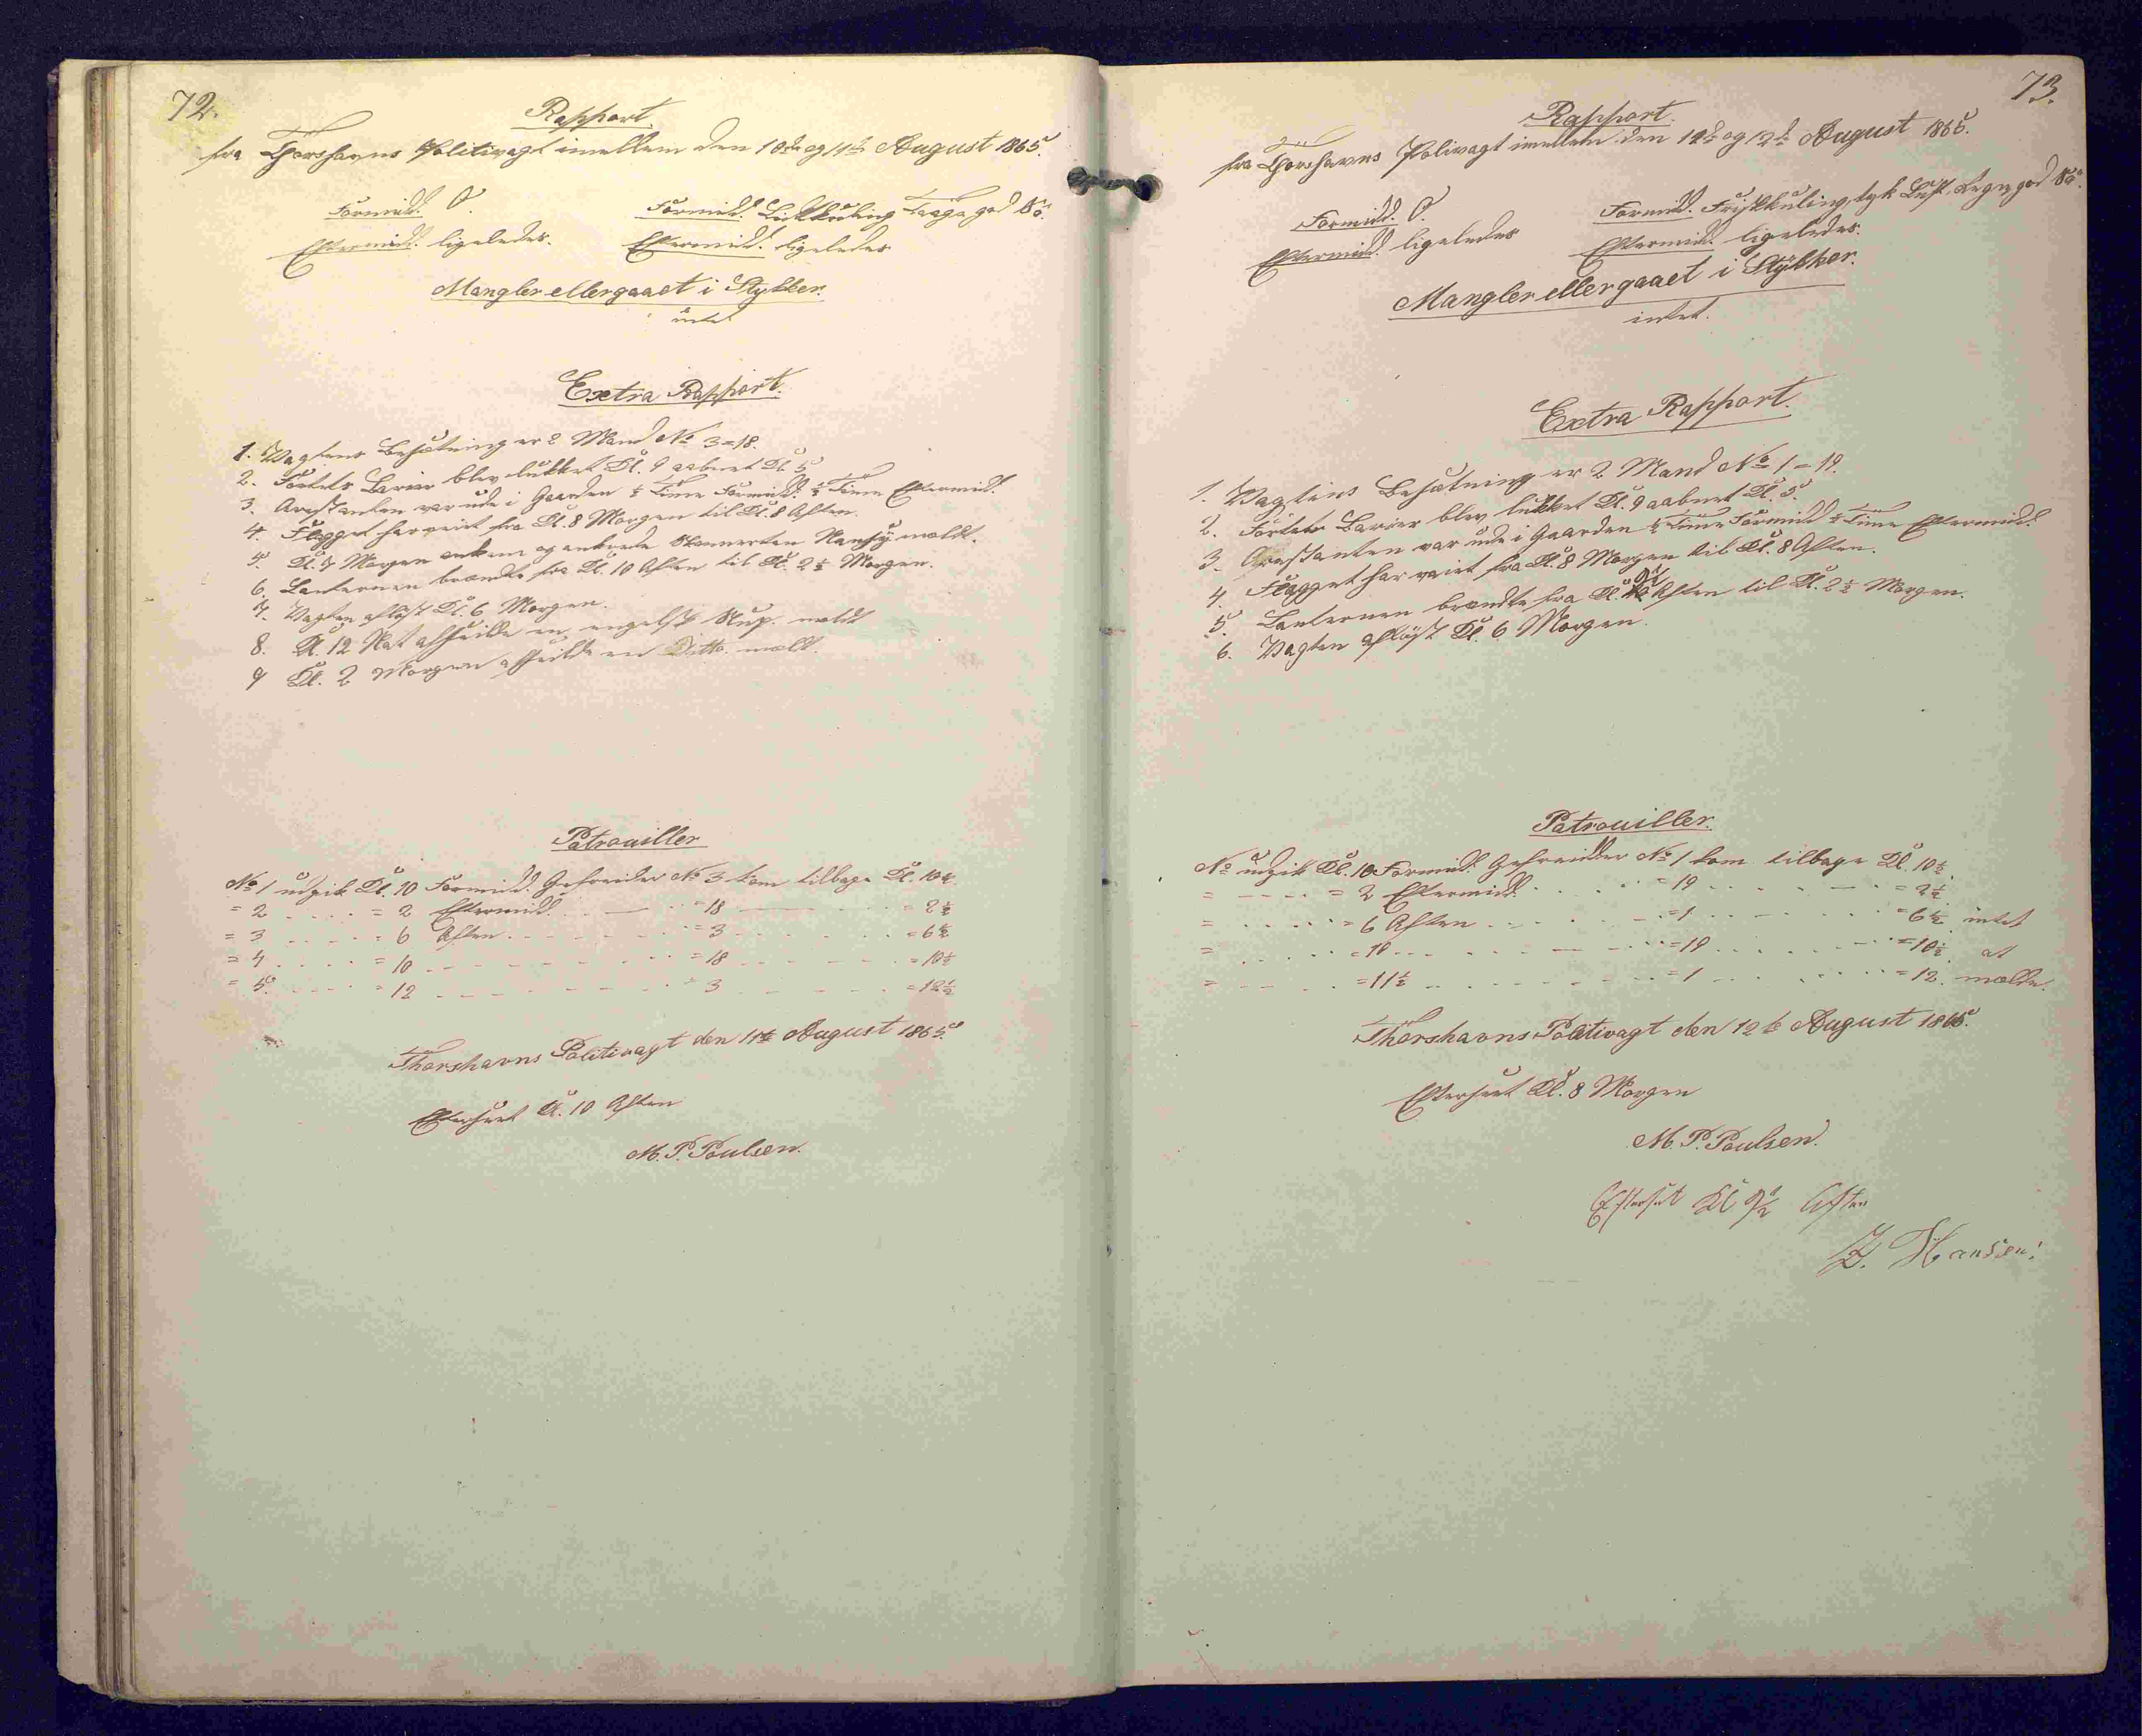 72.
Rapport
fra Thorshavns Politivagt imellem den 10de og 11te August 1865.
Formidd. O.
Formidd. Laikkuling Taage god Sö.
Eftermidd. ligeledes.
Eftermidd. ligeledes
Mangler eller gaaet i Stykker.
intet
Extra Rapport.
1. Vagtens Besætning er 2 Mand No 3=18.
2. Fortets Barier blev lukket Kl. 9 aabnet Kl. 5
3. Arestanten var ude i Gaarden ½ Time Formidd. ½ Time Eftermidd.
4. Flagget har veiet fra Kl. 8 Morgen til Kl. 8 Aften.
5. Kl. 7 Morgen ankom og ankrede Skonnerten Nancy meldt.
6. Lanternen brændte fra Kl. 10 Aften til Kl. 2½ Morgen.
7. Vagten aflöst Kl. 6 Morgen.
8. Kl. 12 Nat afseilde en engelsk Slup. meldt
9 Kl. 2 Morgen afseilde en Ditto. meldt.
Patrouiller
No 1 udgik Kl. 10 Formidd. Gefreider No 3 kom tilbage Kl. 10½.
= 2 . . . . = 2 Eftermidd. . . = 18 . . . = 2½
= 3 . . . . = 6 Aften . . . . = 3 . . . . = 6½
= 4 . . . . = 10 . . . . . = 18 . . . . = 10½
= 5. . . . = 12 . . . . . = 3 . . . . = 12½
Thorshavns Politivagt den 11te August 1865.
Efterseet Kl. 10 Aften
M. P. Poulsen.
73.
Rapport.
fra Thorshavns Polivagt imellem den 11te og 12te August 1865.
Formidd. O.
Formidd. Friskkuling, tyk Luft, Regn god Sö.
Eftermidd. ligeledes
Eftermidd. ligeledes.
Mangler eller gaaet i Stykker.
intet.
Extra Rapport.
1. Vagtens Besætning er 2 Mand No 1=19.
2. Fortets Barier blev lukket Kl. 9 aabnet Kl. 5.
3. Arestanten var ude i Gaarden ½ Time Formidd ½ Time Eftermidd.
4. Flagget har veiet fra Kl. 8 Morgen til Kl. 8 Aften.
5. Lanternen brændte fra Kl. 9½ Aften til Kl. 2½ Morgen.
6. Vagten aflöst Kl. 6 Morgen.
Patrouiller.
No udgik Kl. 10 Formidd. Gefreider No 1 kom tilbage Kl. 10½.
= . . . . = 2 Eftermidd. . . . = 19 . . . . = 2½.
= . . . . = 6 Aften . . . . = 1 . . . . = 6½. intet
= . . . . = 10 . . . . . = 19 . . . . = 10½. at
= . . . . = 11½ . . . . . = 1 . . . . = 12. melde.
Thorshavns Politivagt den 12te August 1865.
Efterseet Kl. 8 Morgen
M. P. Poulsen.
Efterset Kl 9½ Aften
Z. Hansen.